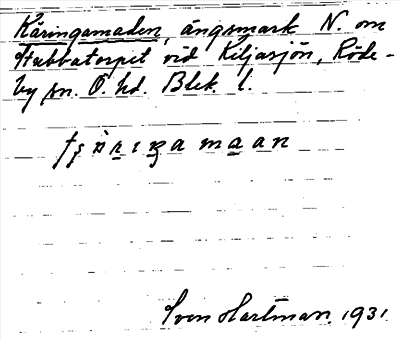 Käringamaden, ängsmark N. om
Stubbatorpet vid Kiljasjön, Röde-
by sn. Ö. hd. Blek. l.
Sven Hartman 1931